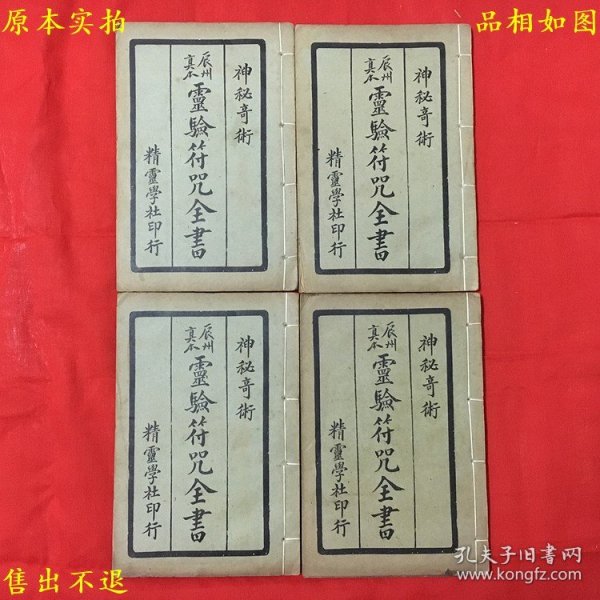 原本实拍
品相如图
神秘奇術
辰州真本
靈驗符咒全書
精靈學社印行
神秘奇術
辰州真本
靈驗符咒全書
精靈學社印行
神秘奇術
辰州真本
靈驗符咒全書
精靈學社印行
神秘奇術
辰州真本
靈驗符咒全書
精靈學社印行
售出不退
孔夫子旧书网
www.kongfz.com